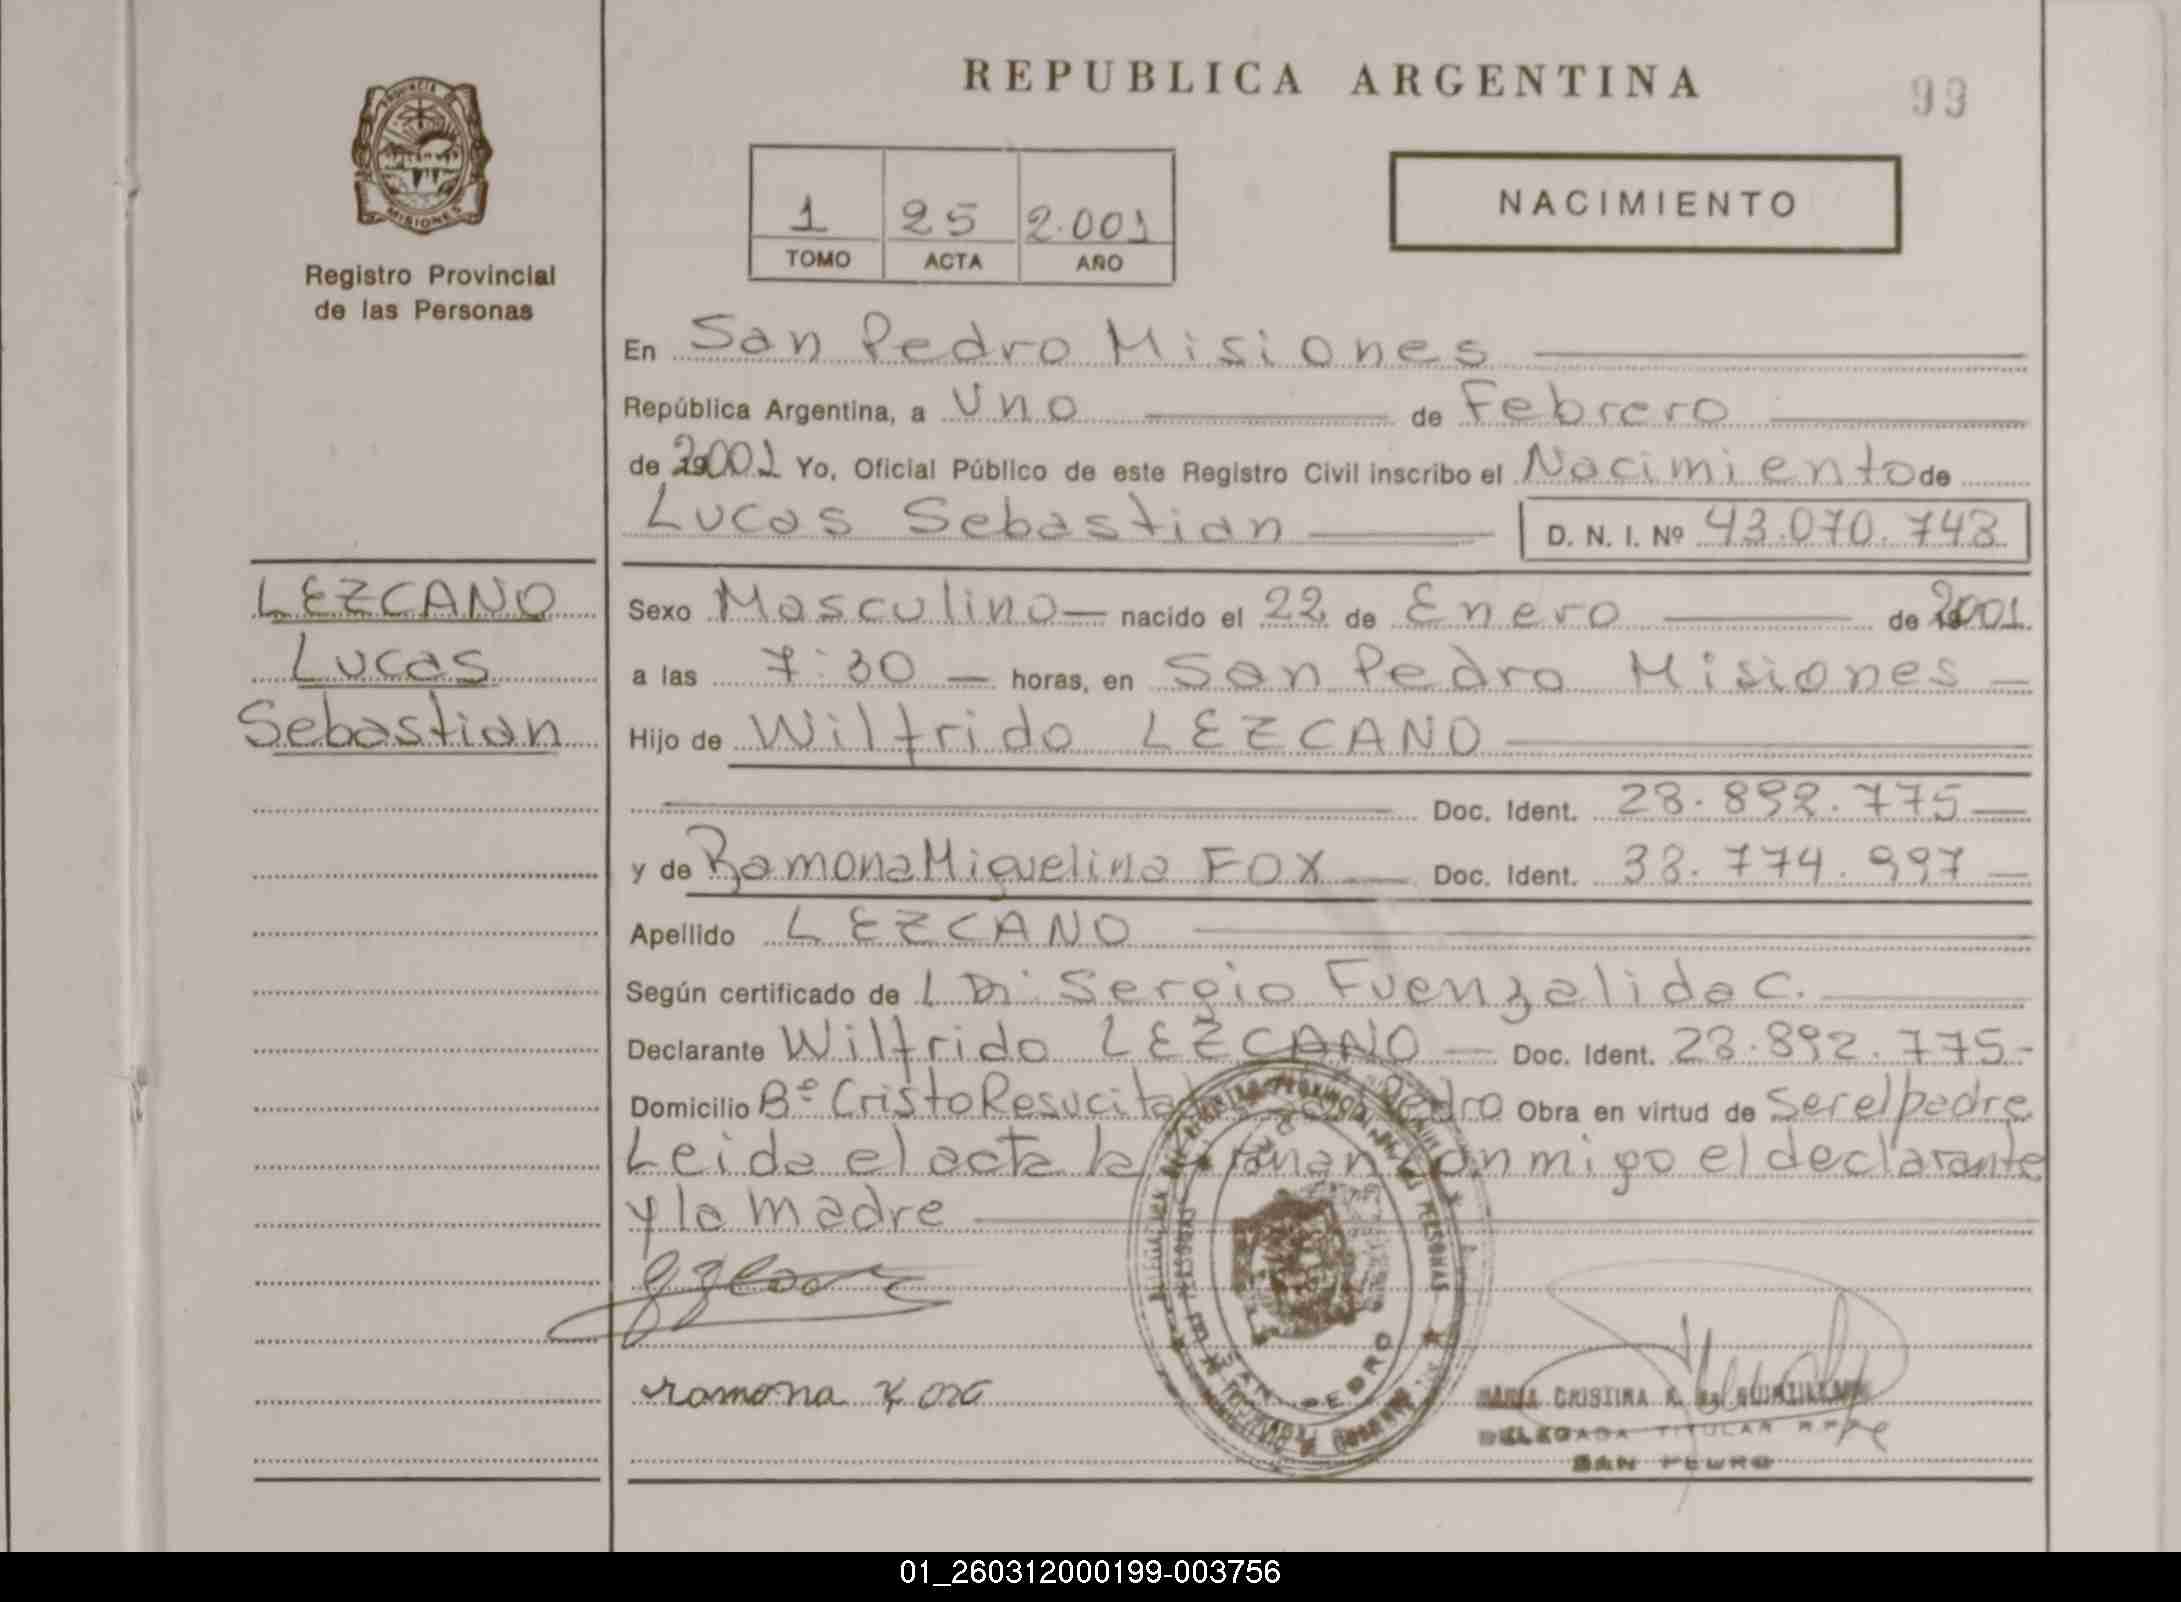 REPUBLICA ARGENTINA
99
PROVINCIA DE
MISIONES
Registro Provincial
de las Personas
1 25 2.001
TOMO ACTA AÑO
NACIMIENTO
En San Pedro Misiones
República Argentina, a Uno de Febrero
de 2001 Yo, Oficial Público de este Registro Civil inscribo el Nacimiento de
Lucas Sebastian D. N. I. Nº 43.070.743
LEZCANO
Lucas
Sebastian
Sexo Masculino nacido el 22 de Enero de 2001
a las 7:30 horas, en San Pedro Misiones
Hijo de Wilfrido LEZCANO
Doc. Ident. 23.892.775
y de Ramona Miguelina FOX Doc. Ident. 33.774.997
Apellido LEZCANO
Según certificado de Sergio Fuenzalida C.
Declarante Wilfrido LEZCANO Doc. Ident. 23.892.775
Domicilio Bº Cristo Resucitado Pedro Obra en virtud de Ser el padre
Leida el acta la firman conmigo el declarante
y la madre
ramona
SAN PEDRO
MARIA CRISTINA
DELEGADA TITULAR
SAN PEDRO
01_260312000199-003756